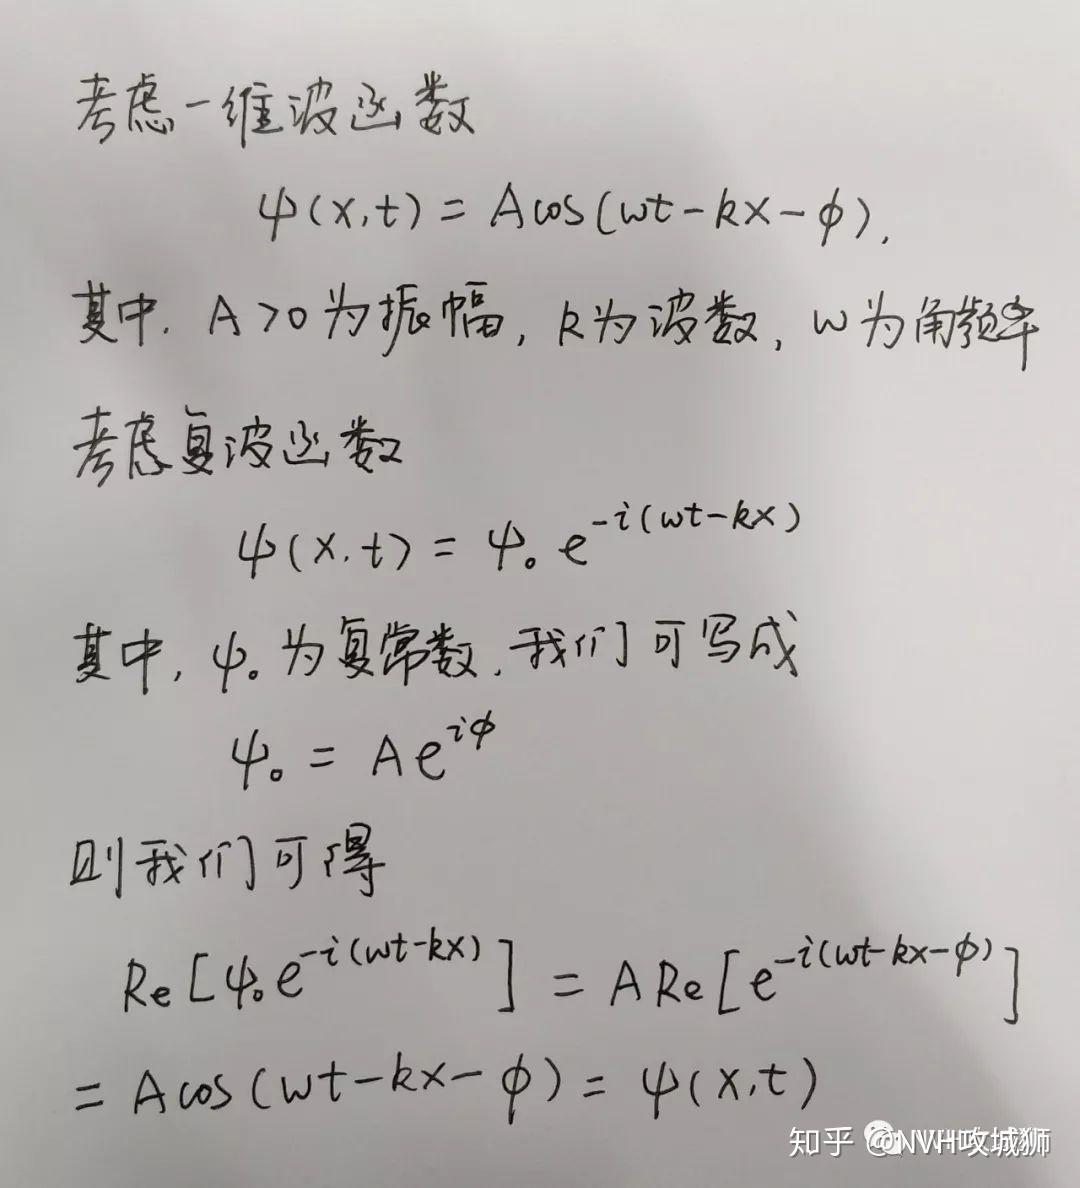 考虑一维波函数
ψ(x,t) = A cos(ωt-kx-φ),
其中, A>0为振幅, k为波数, ω为角频率
考虑复波函数
ψ(x,t) = ψ₀ e^{-i(ωt-kx)}
其中, ψ₀为复常数, 我们可写成
ψ₀ = A e^{iφ}
则我们可得
Re[ψ₀e^{-i(ωt-kx)}] = A Re[e^{-i(ωt-kx-φ)}]
= A cos(ωt-kx-φ) = ψ(x,t)
知乎 @NVH攻城狮